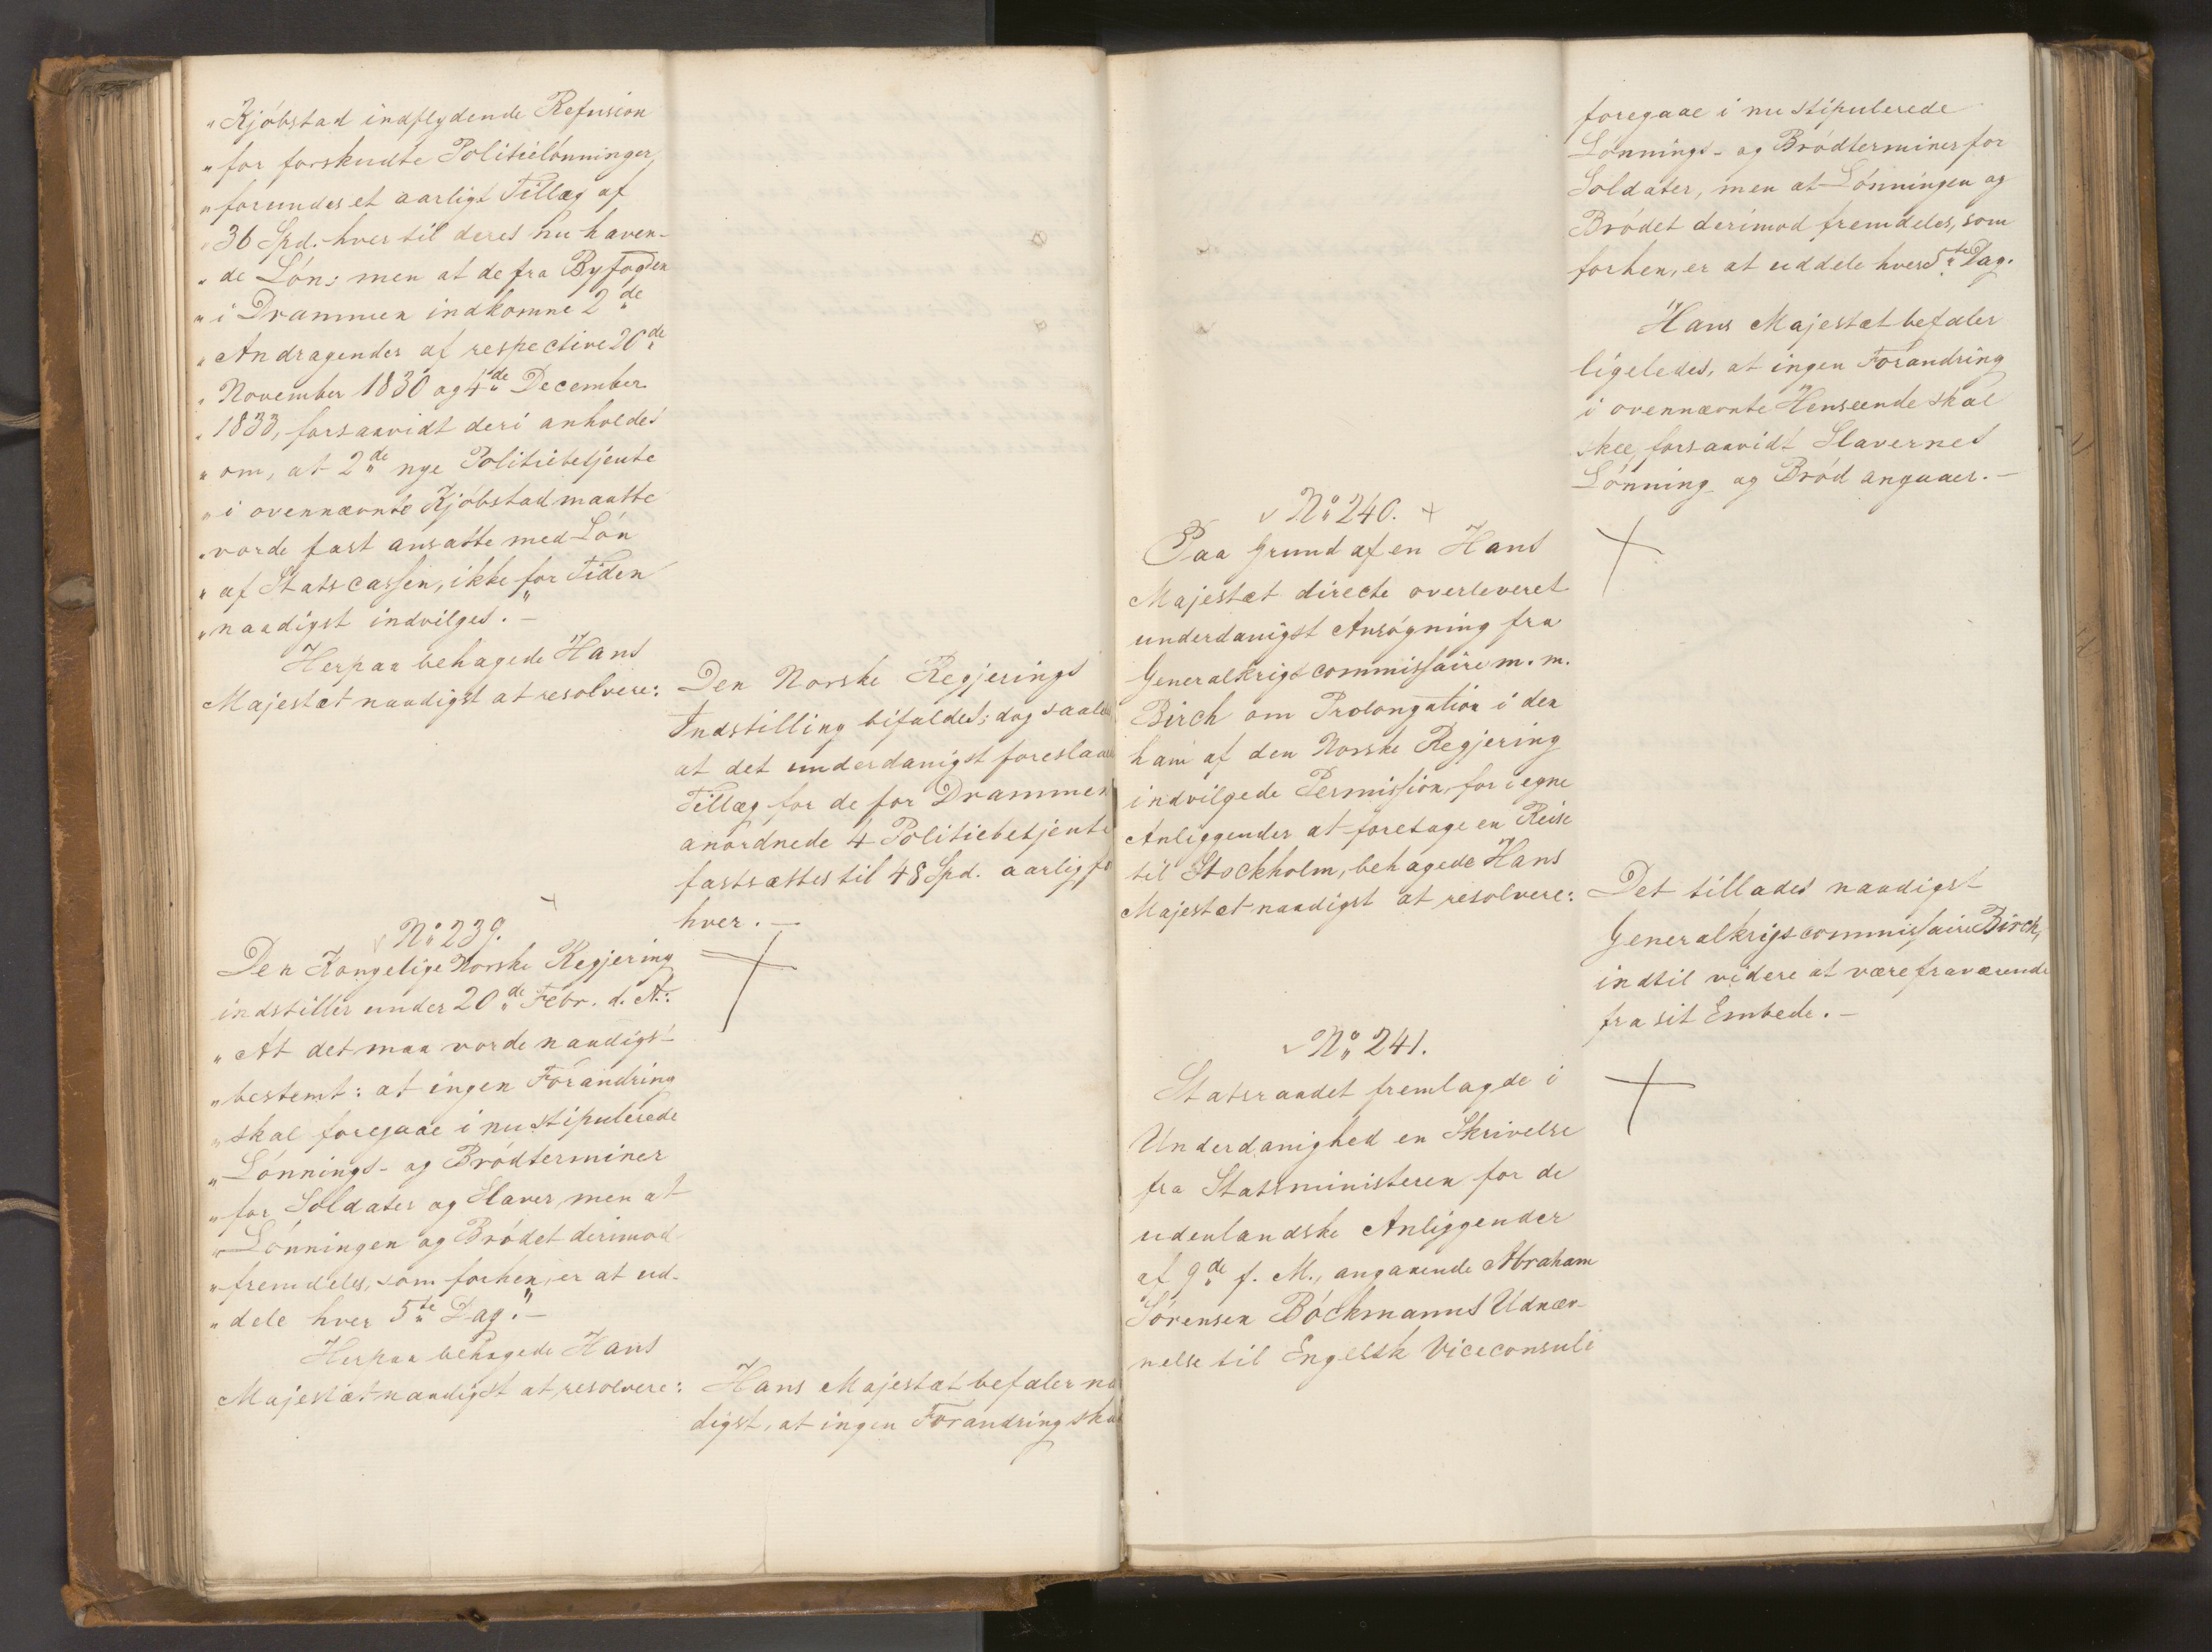 "Kjøbstad indflydende Refusion
"for forskudte Politielønninger,
"forundes et aarligt Tillæg af
"36 Spd. hver til deres nu haven-
"de Løn; men at de fra Byfogden
"i Drammen indkomne 2de
"Andragender af respective 20de
"November 1830 og 4de December
"1833, forsaavidt deri anholdes
"om, at 2de nye Politiebetjente
"i ovennævnte Kjøbstad maatte
"vorde fast ansatte med Løn
"af Statscassen, ikke for Tiden
"naadigst indvilges." –
Herpaa behagede Hans
Majestæt naadigst at resolvere:
Den Norske Regjerings
Indstilling bifaldes; dog saale
at det underdanigst foreslaae
Tillæg for de for Drammen
anordnede 4 Politiebetjente
fastsættes til 48 Spd. aarlig fo
hver. –
No 239.
Den Kongelige Norske Regjering
indstiller under 20de Febr. d. A.:
"At det maa vorde naadigst
"bestemt: at ingen Forandring
"skal foregaae i nu stipulerede
"Lønnings- og Brødterminer
"for Soldater og Slaver, men at
"Lønningen og Brødet derimod
"fremdeles, som forhen, er at ud-
"dele hver 5te Dag." –
Herpaa behagede Hans
Majestæt naadigst at resolvere:
Hans Majestæt befaler naa
digst, at ingen Forandring skal
foregaae i nu stipulerede
Lønnings- og Brødterminer for
Soldater, men at Lønningen og
Brødet derimod fremdeles, som
forhen, er at uddele hver 5te Dag.
Hans Majestæt befaler
ligeledes, at ingen Forandring
i ovennævnte Henseende skal
skee, forsaavidt Slavernes
Lønning og Brød angaaer. –
No 240.
Paa Grund af en Hans
Majestæt directe overleveret
underdanigst Ansøgning fra
Generalkrigscommissaire m. m.
Birch om Prolongation i den
ham af den Norske Regjering
indvilgede Permission, for i egne
Anliggender at foretage en Reise
til Stockholm, behagede Hans
Majestæt naadigst at resolvere:
Det tillades naadigst
Generalkrigscommissaire Birch,
indtil videre at være fraværende
fra sit Embede. –
No 241.
Statsraadet fremlagde i
Underdanighed en Skrivelse
fra Statsministeren for de
udenlandske Anliggender
af 9de f. M., angaaende Abraham
Sørensen Bøckmanns Udnæv-
nelse til Engelsk Viceconsul i